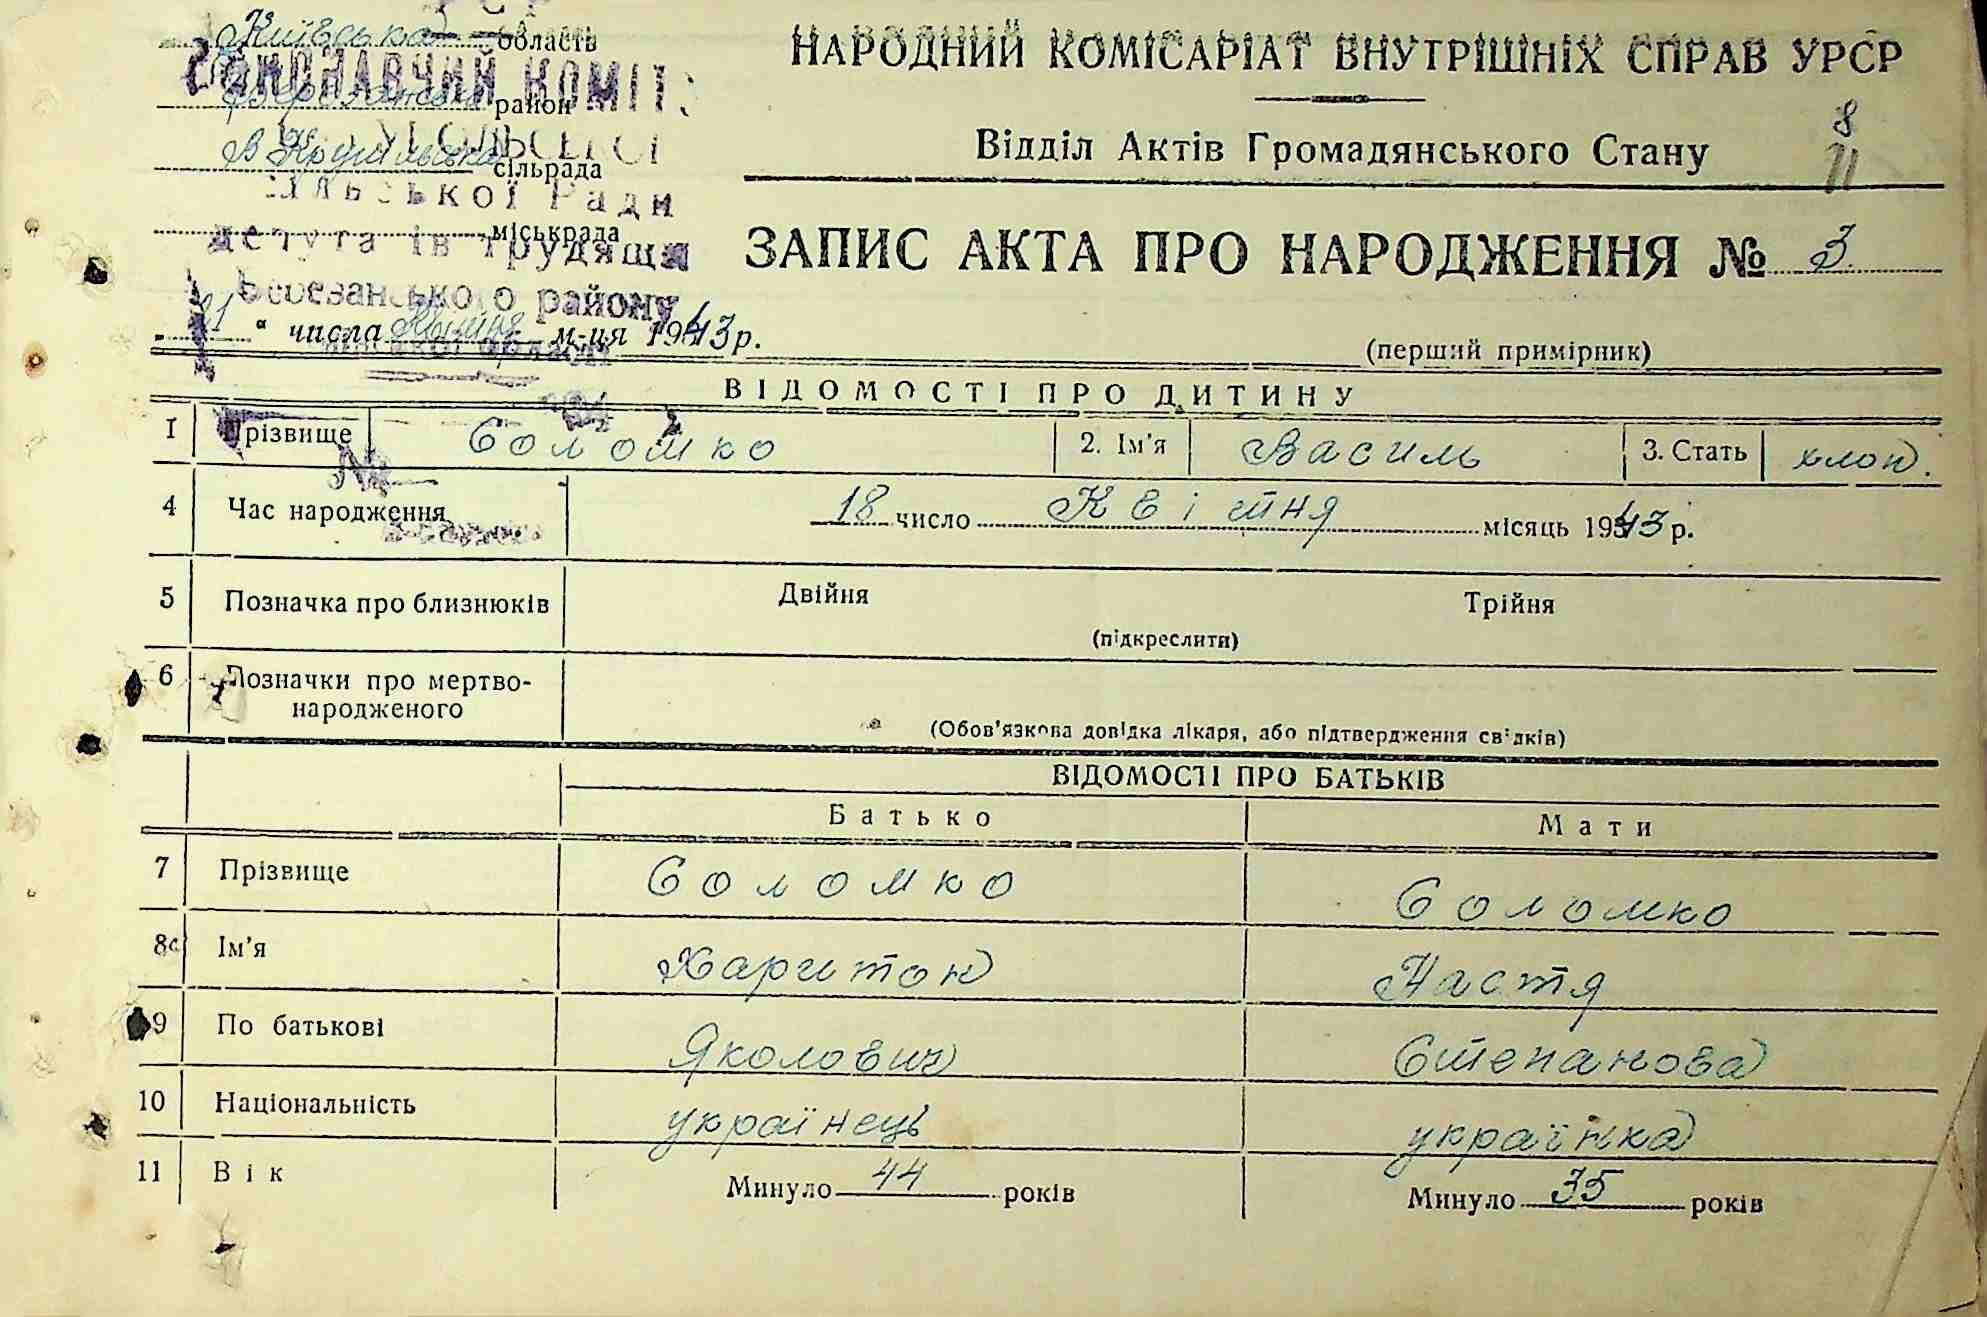 Київська область
НАРОДНИЙ КОМІСАРІАТ ВНУТРІШНІХ СПРАВ УРСР
район
Відділ Актів Громадянського Стану
8
11
сільрада
міськрада
ЗАПИС АКТА ПРО НАРОДЖЕННЯ № 3
Березанського району
21 " числа м-ця 1943 р.
(перший примірник)
ВІДОМОСТІ ПРО ДИТИНУ
1 Прізвище Соломко 2. Ім'я Василь 3. Стать хлоп.
4 Час народження 18 число Квітня місяць 1943 р.
5 Позначка про близнюків Двійня Трійня
(підкреслити)
6 Позначки про мертво-
народженого
(Обов'язкова довідка лікаря, або підтвердження свідків)
ВІДОМОСТІ ПРО БАТЬКІВ
Батько Мати
7 Прізвище Соломко Соломко
8 Ім'я Харитон Настя
9 По батькові Яколович Степанова
10 Національність українець українка
11 Вік Минуло 44 років Минуло 35 років